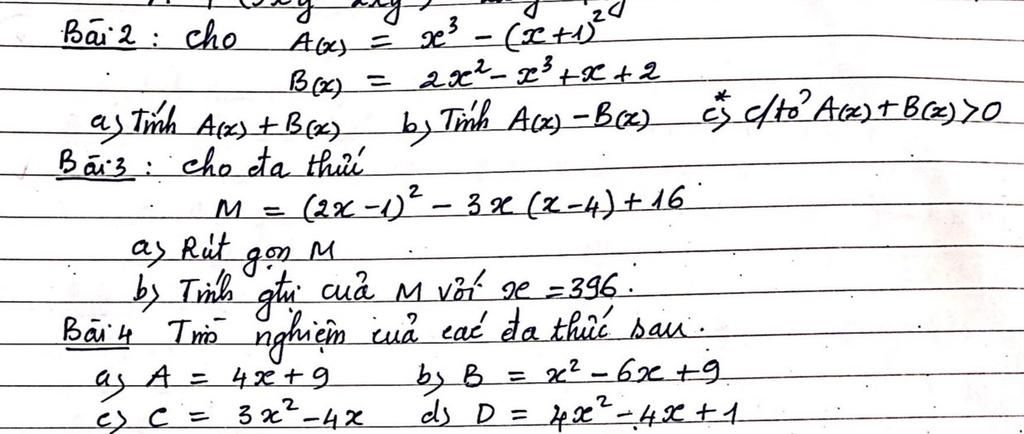 Bài 2 : cho A(x) = x³ - (x+1)²
B(x) = 2x² - x³ + x + 2
a) Tính A(x) + B(x) b) Tính A(x) - B(x) c)* c/tỏ A(x) + B(x) > 0
Bài 3 : cho đa thức
M = (2x - 1)² - 3x (x - 4) + 16
a) Rút gọn M
b) Tính gtrị của M với x = 396.
Bài 4 Tìm nghiệm của các đa thức sau.
a) A = 4x + 9 b) B = x² - 6x + 9
c) C = 3x² - 4x d) D = 4x² - 4x + 1